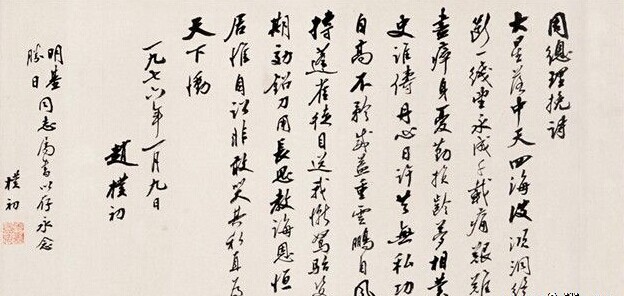 周總理挽詩
大星落中天四海波澒洞終
斷一綫望永成千載痛艱難
盡瘁身憂勤損齡夢相業
史誰儔丹心日許共無私功
自高不矜威益重雲鵬自風
摶蓬雀徒目送我慚駑駘姿
期効鉛刀用長思教誨恩恒
居惟自訟非敢哭其私直為
天下慟
一九七六年一月九日
趙樸初
明基
勝日同志屬書以存永念
樸初